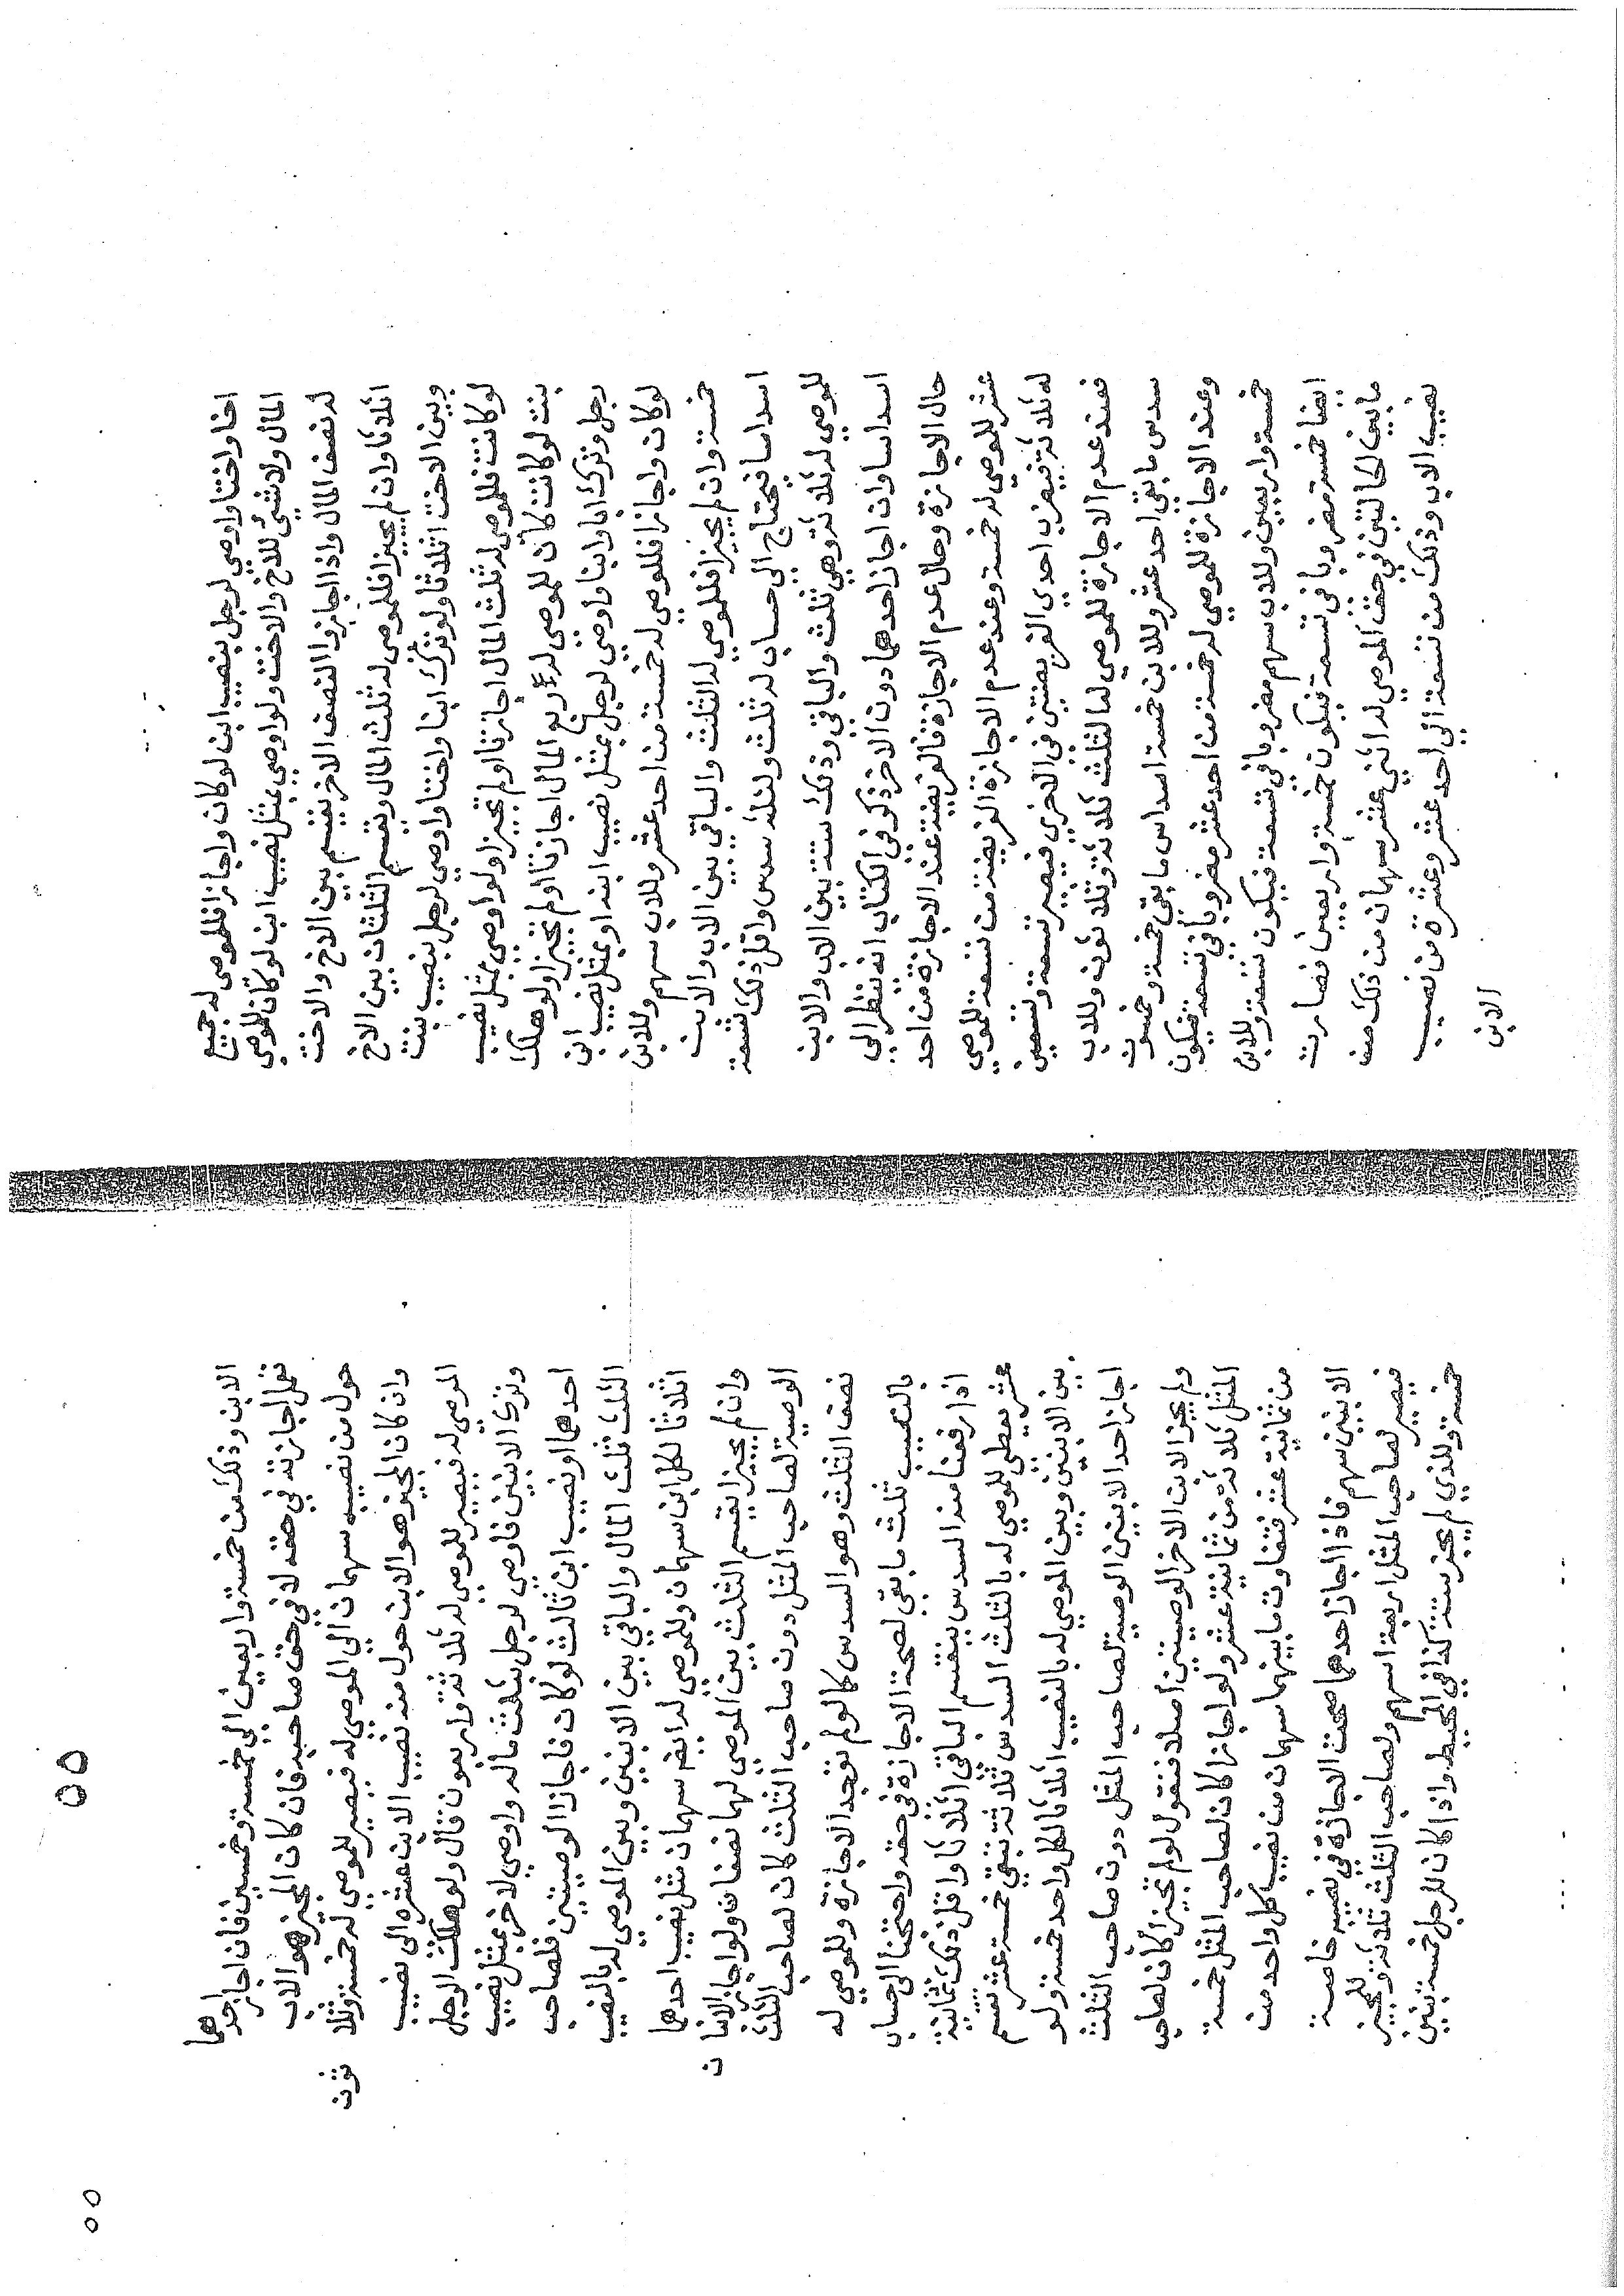 اخا واختا واوصي لرجل بنصيب ابن لوكان واجازا فللموصى له جميع
المال ولا شيئ للاخ والاخت ولو اوصي بمثل نصيب ابن لوكان فللموصي
له نصف المال واذا اجازوا النصف الاخر يقسم بين الاخ والاخت
اثلاثا وان لم يجيزا فللموصى له ثلث المال ويقسم الثلثان بين الاخ
وبين الاخت اثلاثا ولو ترك ابنا واختا واوصي لرجل بنصيب بنت
لوكانت فللموصى له ثلث المال اجازتا اولم تجيزا ولو اوصي بمثل نصيب
بنت لوكانت كان للموصى له ربع المال اجازتا اولم تجيزا ولو هلك
رجل وترك ابا وابنا واوصي لرجل بمثل نصيب ابنه او بمثل نصيب ابن
لوكان واجازا فللموصي له خمسة من احد عشر وللاب سهم وللابن
خمسة وان لم يجيزا فللموصي له الثلث والباقي بين الاب والابن
اسداسا فيحتاج الى حساب له ثلث ولثلثه سدس واقل ذلك تسعة
للموصي له ثلاثة وهي ثلث والباقي وذلك ستة بين الاب والابن
اسداسا وان اجاز احدهما دون الاخر ذكر في الكتاب انه تنظر الى
حال الاجازة وحال عدم الاجازة فالفريضة عند الاجازة من احد
عشر للموصي له خمسة وعند عدم الاجازة الفريضة من تسعة للموصي
له ثلاثة فيضرب احدي الفريضتين في الاخري فيصير تسعة وتسعين
فعند عدم الاجازة للموصي له الثلث ثلاثة وثلاثون وللاب
سدس ما بقي احد عشر وللابن خمسة اسداس ما بقي خمسة وخمسون
وعند الاجازة للموصي له خمسة من احد عشر مضروبا في تسعة فيكون
خمسة واربعين وللاب سهم مضروبا في تسعة فيكون تسعة وللابن
ايضا خمسة مضروبا في تسعة فيكون خمسة واربعين فصارت
ما بين الحالتين في حق الموصي له اثني عشر سهمان من ذلك من
نصيب الاب وذلك من تسعة الي احد عشر وعشرة من نصيب
الابن
٥٥
الابن وذلك من خمسة واربعين الي خمسة وخمسين فان اجاز احدهما
تعمل اجازته في حقه لا في حق صاحبه فان كان المجيز هو الاب
حول من نصيبه سهمان الي الموصي له فيصير للموصي له خمسة وثلاثون
وان كان المجيز هو الابن حول من نصيب الابن عشرة الى نصيب
الموصي له فيصير للموصي له ثلاثة واربعون قال ولو هلك الرجل
وترك الابنين فاوصي لرجل بثلث ماله واوصي لاخر بمثل نصيب
احدهما او نصيب ابن ثالث لوكان فاجازا الوصيتين فلصاحب
الثلث ثلث المال والباقي بين الابنين وبين الموصي له بالنصيب
اثلاثا لكل ابن سهمان وللموصي له ايضا سهمان مثل نصيب احدهما
وان لم يجيزا يقسم الثلث بين الموصي لهما نصفان ولو اجاز الابنان
الوصية لصاحب المثل دون صاحب الثلث كان لصاحب الثلث
نصف الثلث وهو السدس كما لو لم توجد الاجازة وللموصي له
بالنصيب ثلث ما بقي لصحة الاجازة في حقه واحتجنا الى حساب
اذا رفعنا منه السدس ينقسم الباقي اثلاثا واقل ذلك ثمانية
عشر يعطى للموصي له بالثلث السدس ثلاثة تبقي خمسة عشر تقسم
بين الابنين وبين الموصي له بالنصيب اثلاثا لكل واحد خمسة ولو
اجاز احد الابنين الوصية لصاحب المثل دون صاحب الثلث
ولم يجز الابن الاخر الوصيتين اصلا فنقول لو لم تجيزا كان لصاحب
المثل ثلاثة من ثمانية عشر ولو اجازا كان لصاحب المثل خمسة
من ثمانية عشر فتفاوت ما بينهما سهمان من نصيب كل واحد من
الابنين سهم فاذا اجاز احدهما صحت الاجازة في نصيبه خاصة
فيصير لصاحب المثل اربعة اسهم ولصاحب الثلث ثلاثة وللمجيز
خمسة وللذي لم يجز ستة كذا في المحيط واذا كان للرجل خمسة بنين
٥٥